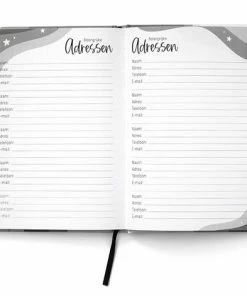 Belangrijke
Adressen
Naam
Adres
Telefoon
E-mail
Naam
Adres
Telefoon
E-mail
Naam
Adres
Telefoon
E-mail
Naam
Adres
Telefoon
E-mail
Naam
Adres
Telefoon
E-mail
Belangrijke
Adressen
Naam
Adres
Telefoon
E-mail
Naam
Adres
Telefoon
E-mail
Naam
Adres
Telefoon
E-mail
Naam
Adres
Telefoon
E-mail
Naam
Adres
Telefoon
E-mail